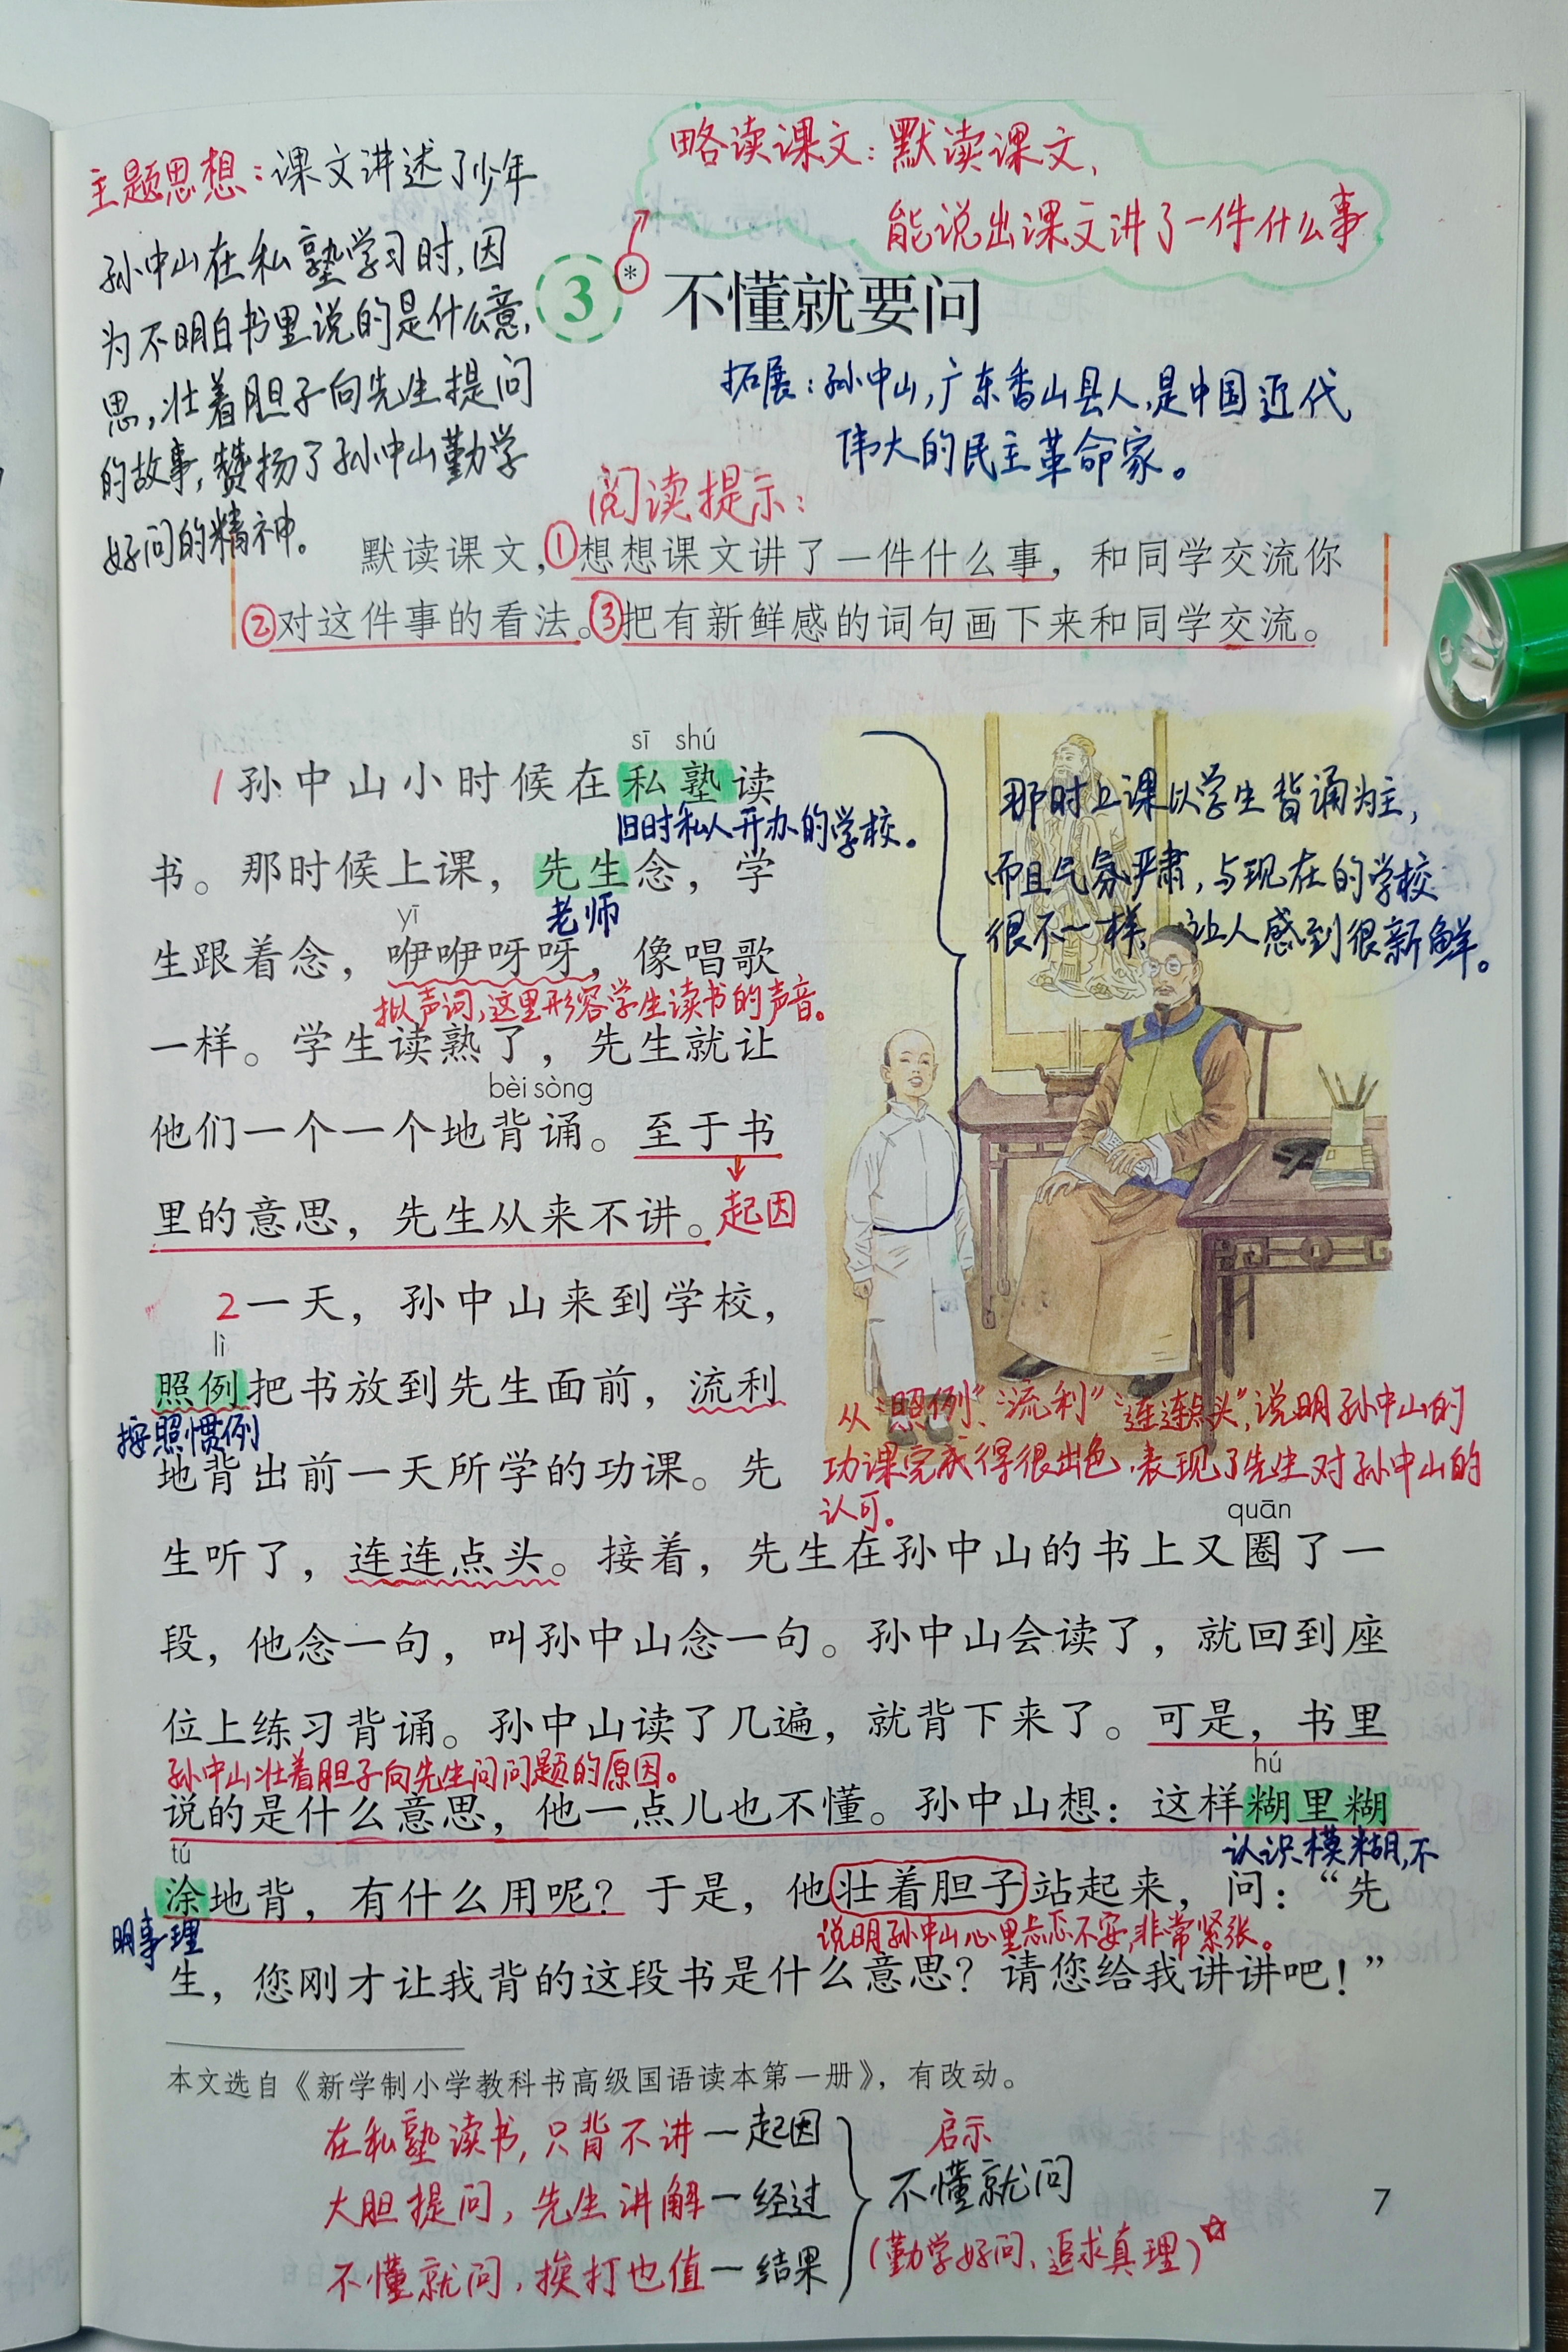 略读课文：默读课文，
能说出课文讲了一件什么事
主题思想：课文讲述了少年
孙中山在私塾学习时，因
为不明白书里说的是什么意
思，壮着胆子向先生提问
的故事，赞扬了孙中山勤学
好问的精神。
3 * 不懂就要问
拓展：孙中山，广东香山县人，是中国近代
伟大的民主革命家。
阅读提示：
默读课文，①想想课文讲了一件什么事，和同学交流你
②对这件事的看法。③把有新鲜感的词句画下来和同学交流。
sī shú
1 孙中山小时候在私塾读
旧时私人开办的学校。
书。那时候上课，先生念，学
yī
老师
生跟着念，咿咿呀呀，像唱歌
拟声词，这里形容学生读书的声音。
一样。学生读熟了，先生就让
bèi sòng
他们一个一个地背诵。至于书
里的意思，先生从来不讲。起因
那时上课以学生背诵为主，
而且气氛严肃，与现在的学校
很不一样，让人感到很新鲜。
2 一天，孙中山来到学校，
lì
照例把书放到先生面前，流利
按照惯例
地背出前一天所学的功课。先
从“照例”、“流利”“连连点头”，说明孙中山的
功课完成得很出色，表现了先生对孙中山的
认可。
quān
生听了，连连点头。接着，先生在孙中山的书上又圈了一
段，他念一句，叫孙中山念一句。孙中山会读了，就回到座
位上练习背诵。孙中山读了几遍，就背下来了。可是，书里
孙中山壮着胆子向先生问问题的原因。
hú
说的是什么意思，他一点儿也不懂。孙中山想：这样糊里糊
tú
认识模糊，不
涂地背，有什么用呢？于是，他壮着胆子站起来，问：“先
明事理
说明孙中山心里忐忑不安，非常紧张。
生，您刚才让我背的这段书是什么意思？请您给我讲讲吧！”
本文选自《新学制小学教科书高级国语读本第一册》，有改动。
在私塾读书，只背不讲—起因
大胆提问，先生讲解—经过
不懂就问，挨打也值—结果
启示
不懂就问
（勤学好问、追求真理）☆
7